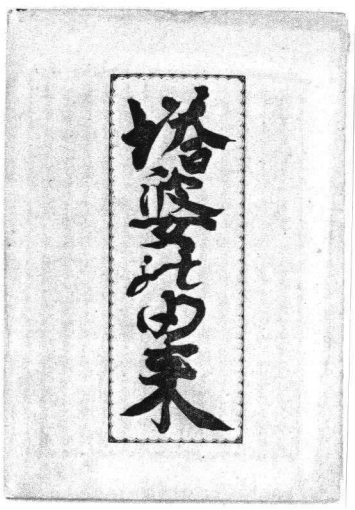 塔婆の由来